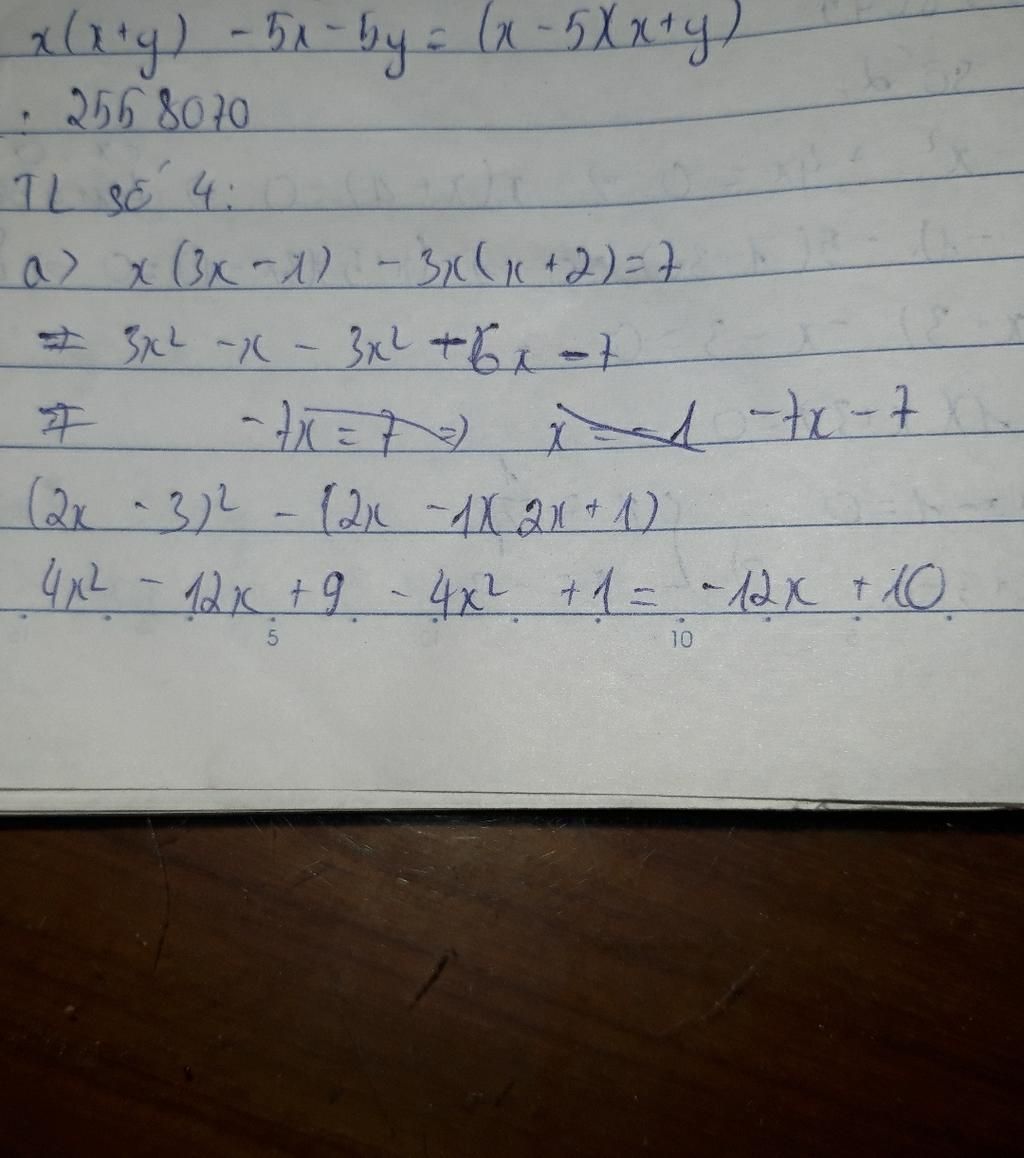 x(x+y) - 5x - 5y = (x - 5)(x+y)
: 2558070
TL số 4:
a) x(3x - 1) - 3x(x+2) = 7
= 3x² - x - 3x² + 6x - 7
= -7x = 7 => x = -1 -7x - 7
(2x - 3)² - (2x - 1)(2x + 1)
4x² - 12x + 9 - 4x² + 1 = -12x + 10
5 10